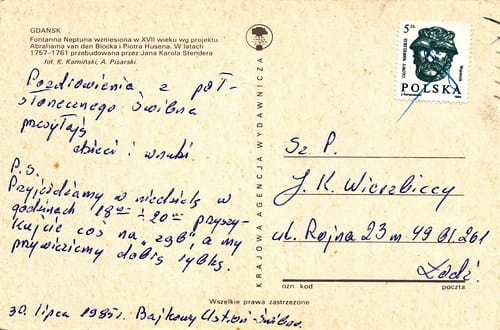 GDAŃSK
Fontanna Neptuna wzniesiona w XVII wieku wg projektu
Abrahama van den Blocka i Piotra Husena. W latach
1757-1761 przebudowana przez Jana Karola Stendera
fot. K. Kamiński, A. Pisarski
Pozdrowienia z poł-
słonecznego Świbna
przesyłają
dzieci i wnuki.
P.S.
Przyjeżdżamy w niedzielę w
godzinach 18 00 - 20 00 przyszy-
kujcie coś na „ząb", a my
przywieziemy dobrą rybkę.
30. lipca 1985 r. Bajkowy Ustroń-Świbno.
KRAJOWA AGENCJA WYDAWNICZA
5 zł
GŁOWY WAWELSKIE
POLSKA
Sz. P.
J. K. Wieszbiccy
ul. Rojna 23 m 49 91-261
Łódź
ozn. kod
poczta
Wszelkie prawa zastrzeżone